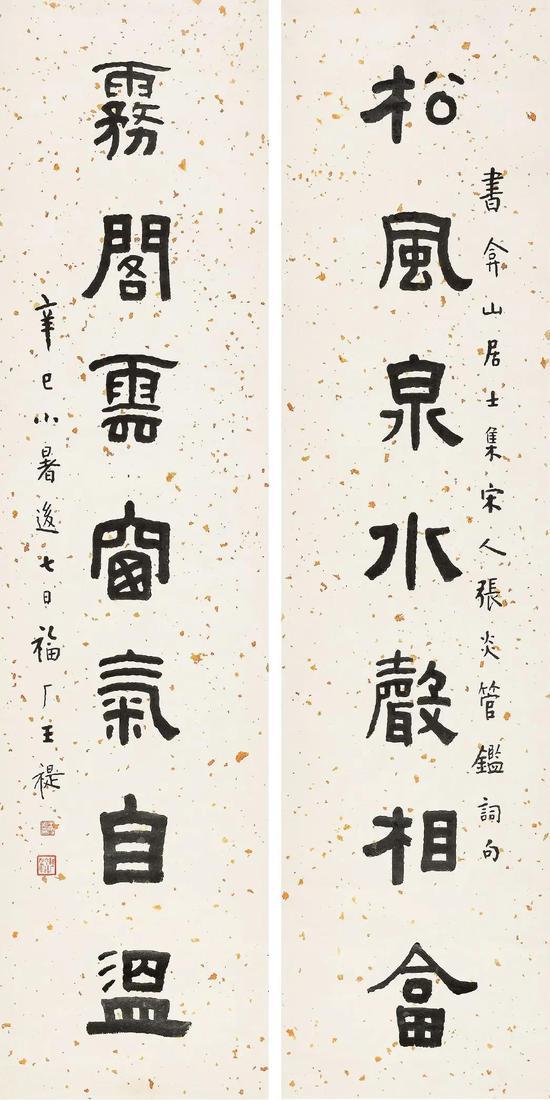 書弇山居士集宋人張炎管鑑詞句
松風泉水聲相畣
霧閣雲窗氣自溫
辛巳小暑後七日福厂王禔